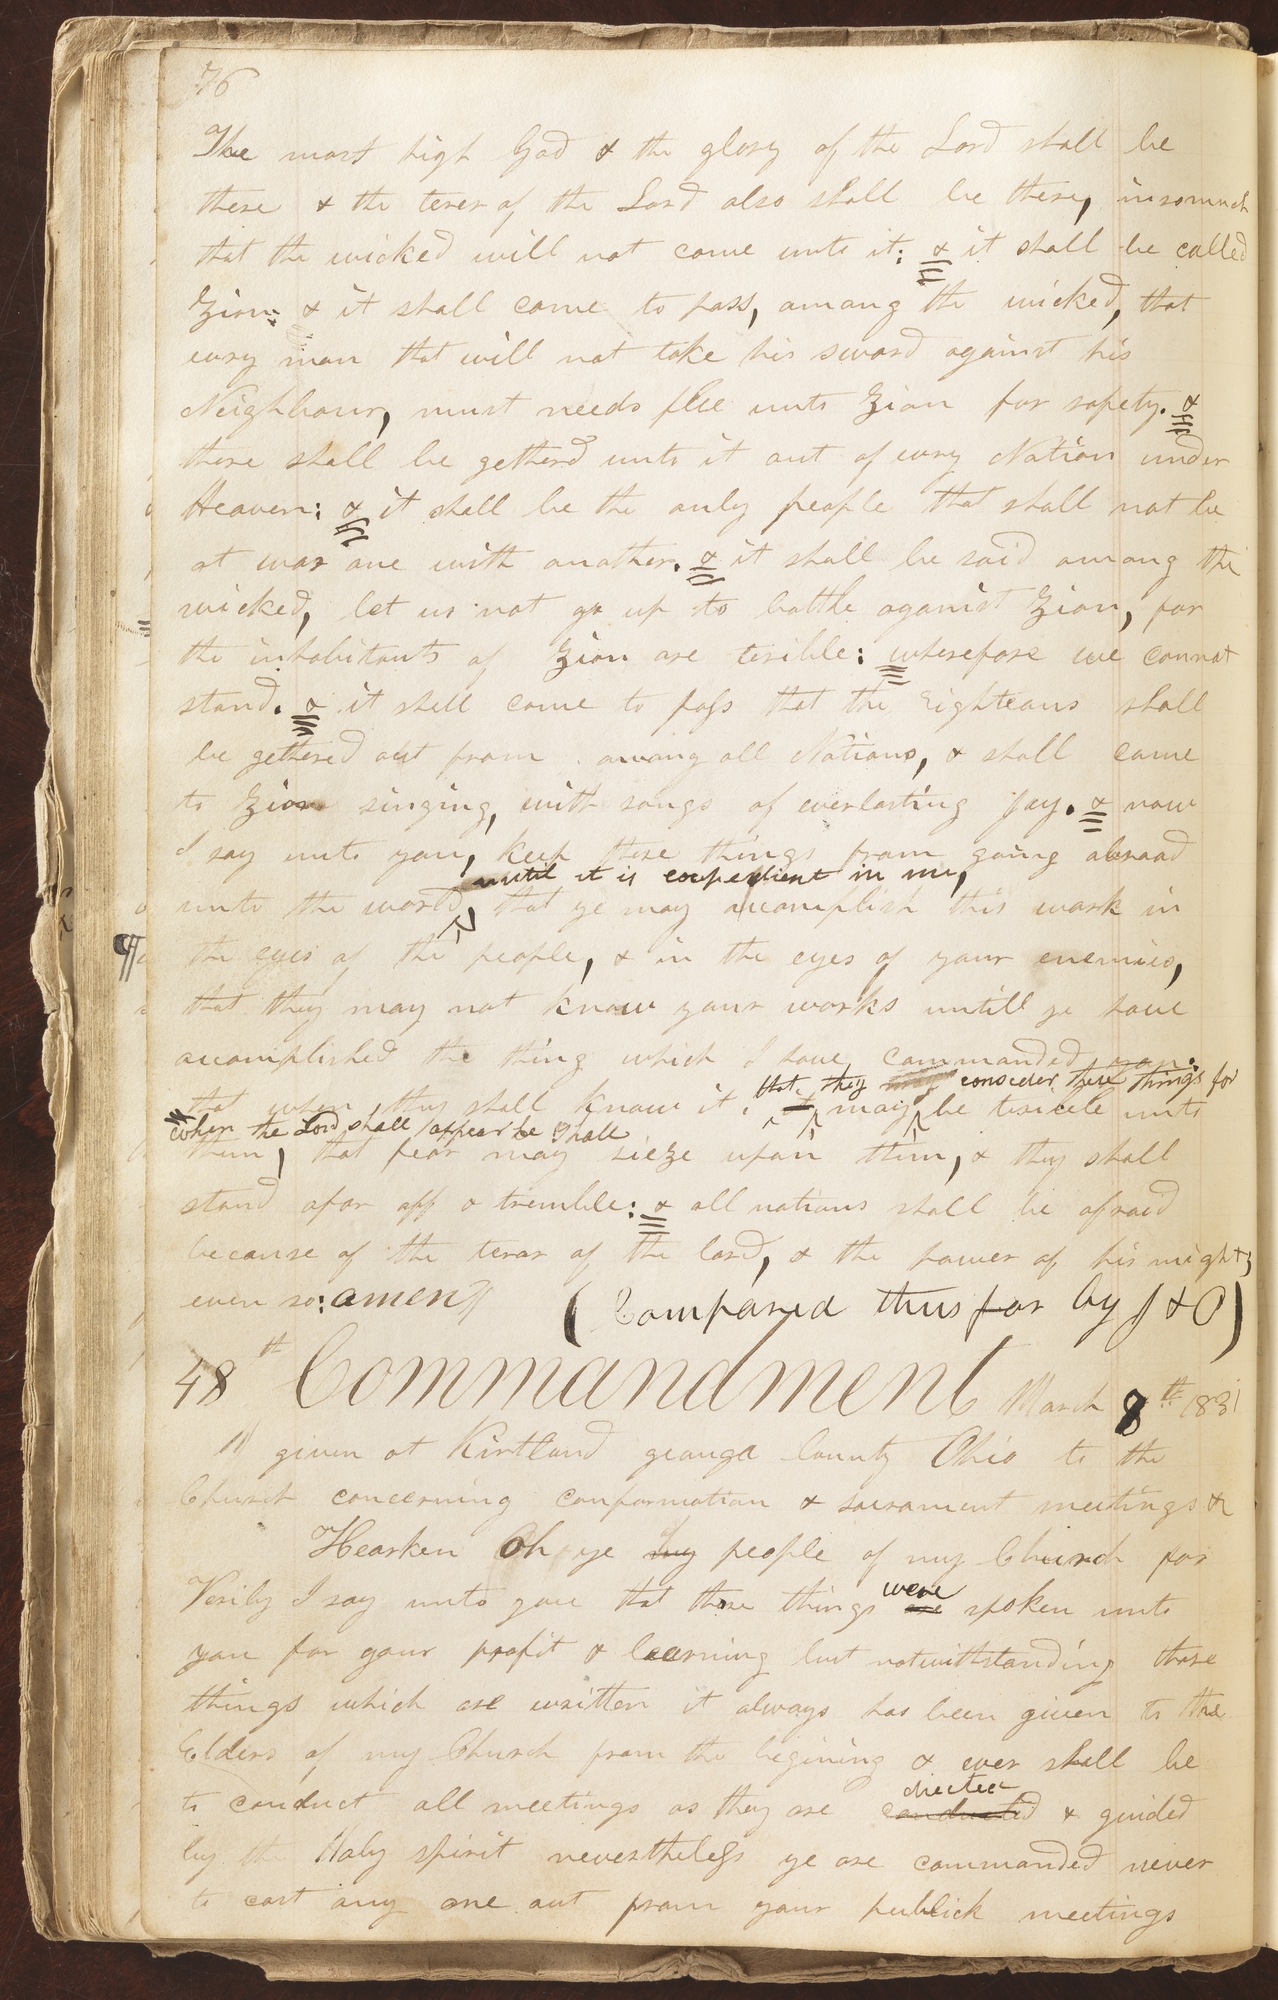 76
The most high God & the glory of the Lord shall be
there & the terer of the Lord also shall be there, insomuch
that the wicked will not come unto it: & it shall be called
Zion; & it shall come to pass, among the wicked, that
evry man that will not take his sword against his
Neighbour, must needs flee unto Zion for safety. &
there shall be getherd unto it out of evry Nation under
Heaven: & it shall be the only people that shall not be
at war one with another. & it shall be said among the
wicked, let us not go up to battle against Zion, for
the inhabitants of Zion are terible: wherefore we cannot
stand. & it shall come to pass that the righteous shall
be gethered out from among all Nations, & shall come
to Zion singing, with songs of everlasting Joy. & now
I say unto you, keep these things from going abroad
until it is expedient in me,
unto the world, that ye may accomplish this work in
¶ the eyes of the people, & in the eyes of your enemies,
that they may not know your works untill ye have
accomplished the thing which I have commanded you.
that they may consider these things for
that when they shall know it, it may be terible unto
when the Lord shall appear he shall
them, that fear may sieze upon them, & they shall
stand afar off & tremble: & all nations shall be afraid
because of the teror of the lord, & the power of his might,
even so: amen
(Compared thus far by J & O)
48th Commandment March 8th 1831
given at Kirtland geauga County Ohio to the
Church concerning conformation & sacrament meetings &
Hearken Oh ye my people of my Church for
Verily I say unto you that these things were
are spoken unto
you for your profit & learning but notwithstanding those
things which are written it always has been given to the
Elders of my Church from the begining & ever shall be
directed
to conduct all meetings as they are conducted & guided
by the Holy spirit nevertheless ye are commanded never
to cast any one out from your publick meetings